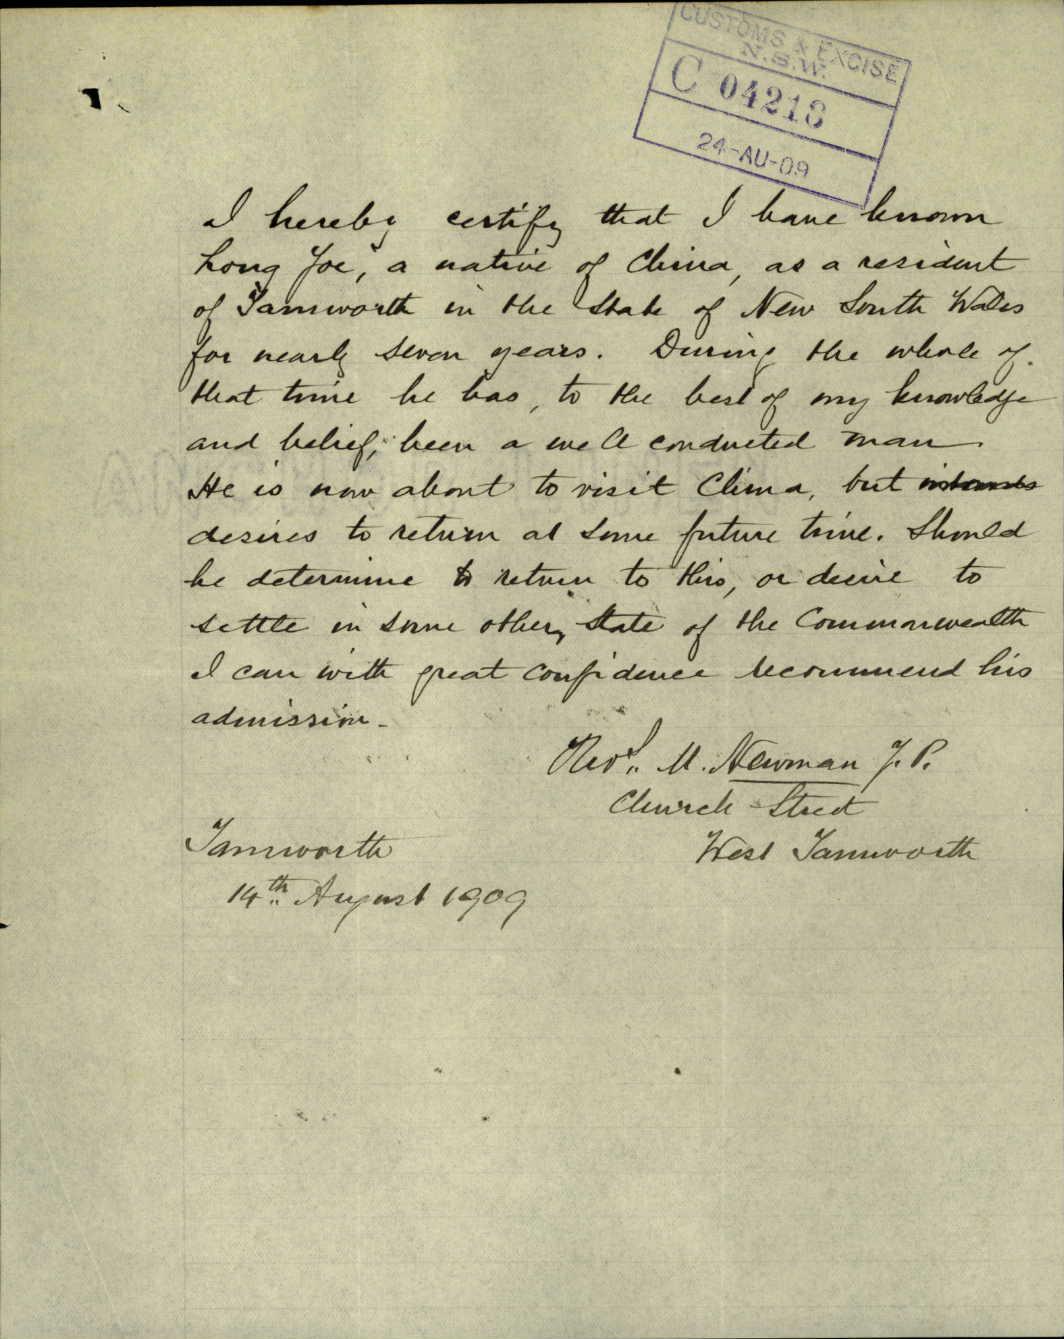 CUSTOMS & EXCISE
N.S.W.
C 04218
24-AU-09
I hereby certify that I have known
Long Joe, a native of China, as a resident
of Tamworth in the State of New South Wales
for nearly seven years. During the whole of
that time he has, to the best of my knowledge
and belief, been a well conducted man.
He is now about to visit China, but intends
desires to return at some future time. Should
he determine to return to this, or desire to
settle in some other, State of the Commonwealth
I can with great confidence recommend his
admission.
Revd. M. Newman J.P.
Church Street
West Tamworth
Tamworth
14th August 1909